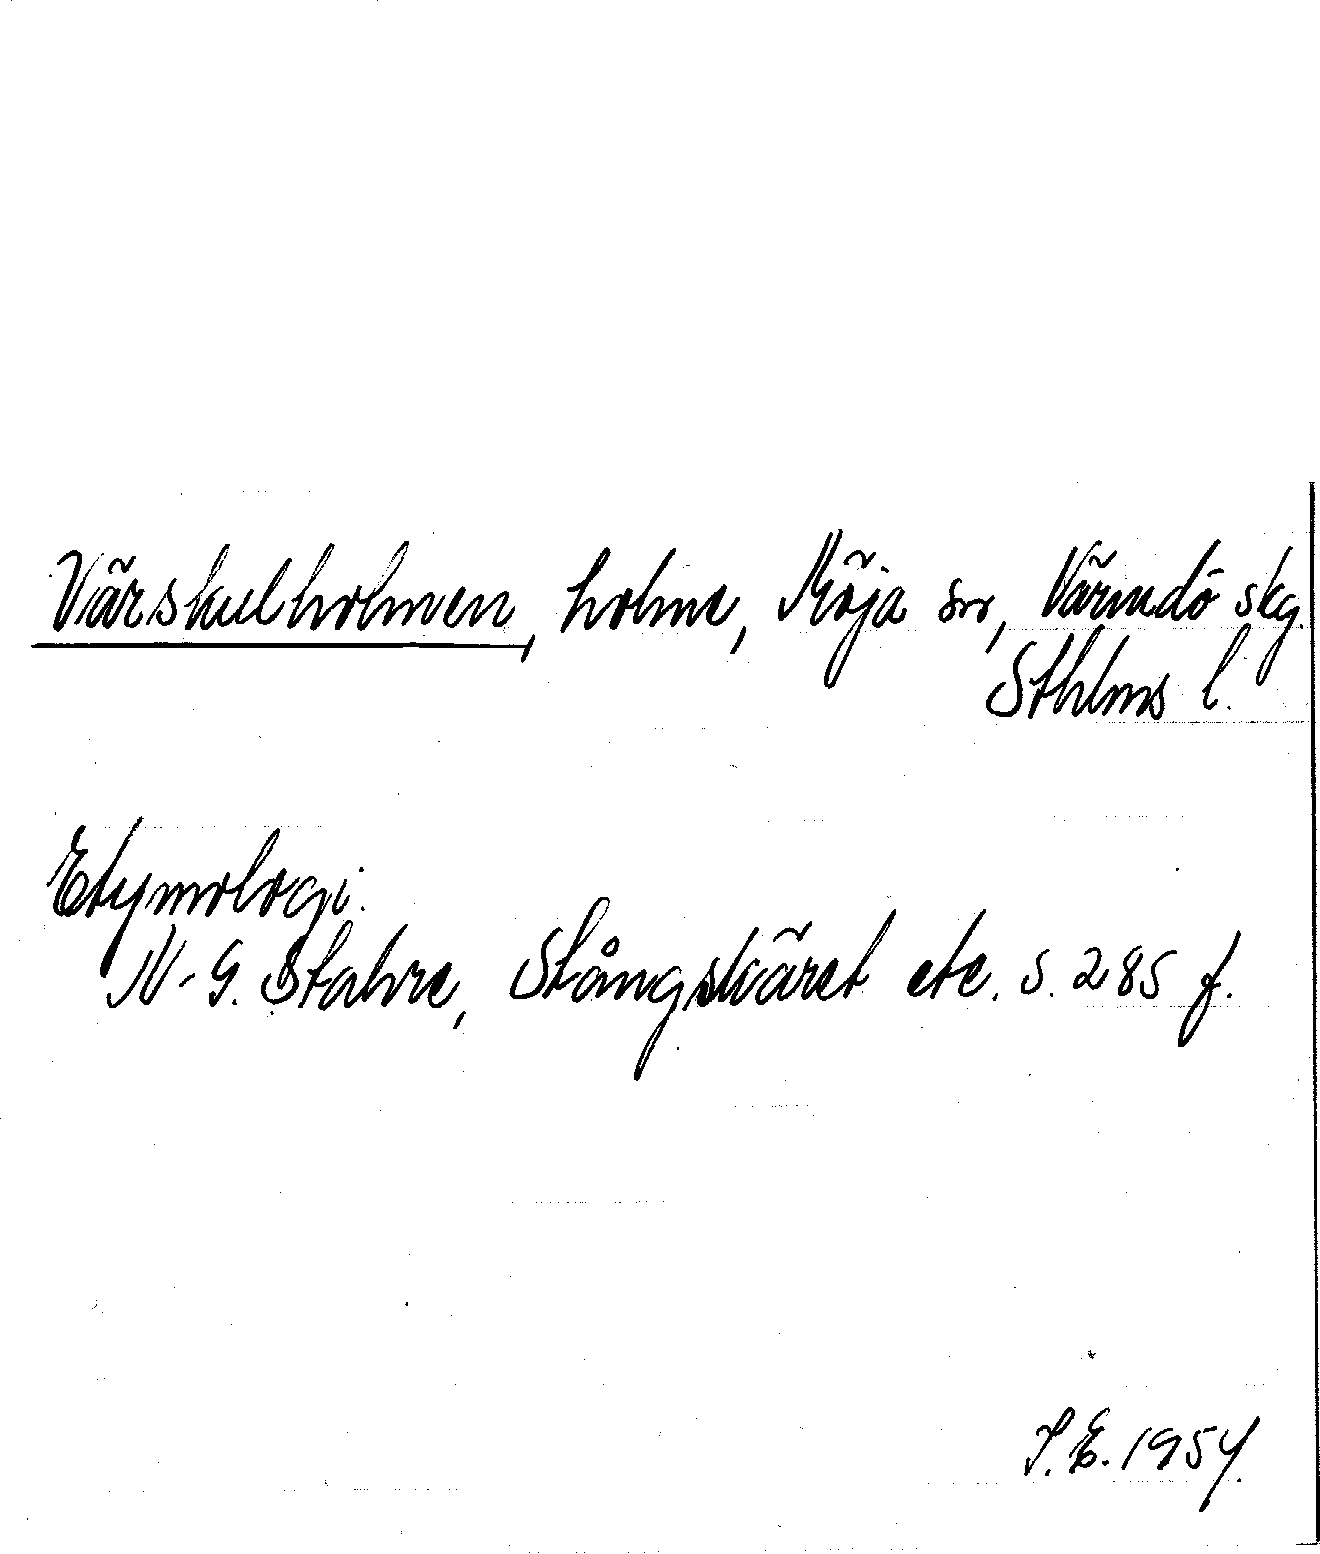 Värskulholmen, holme, Möja sn, Värmdö skg.
Sthlms l.
Etymologi:
N-G. Stahre, Stångskäret etc. s. 285 f.
S.E. 1954.